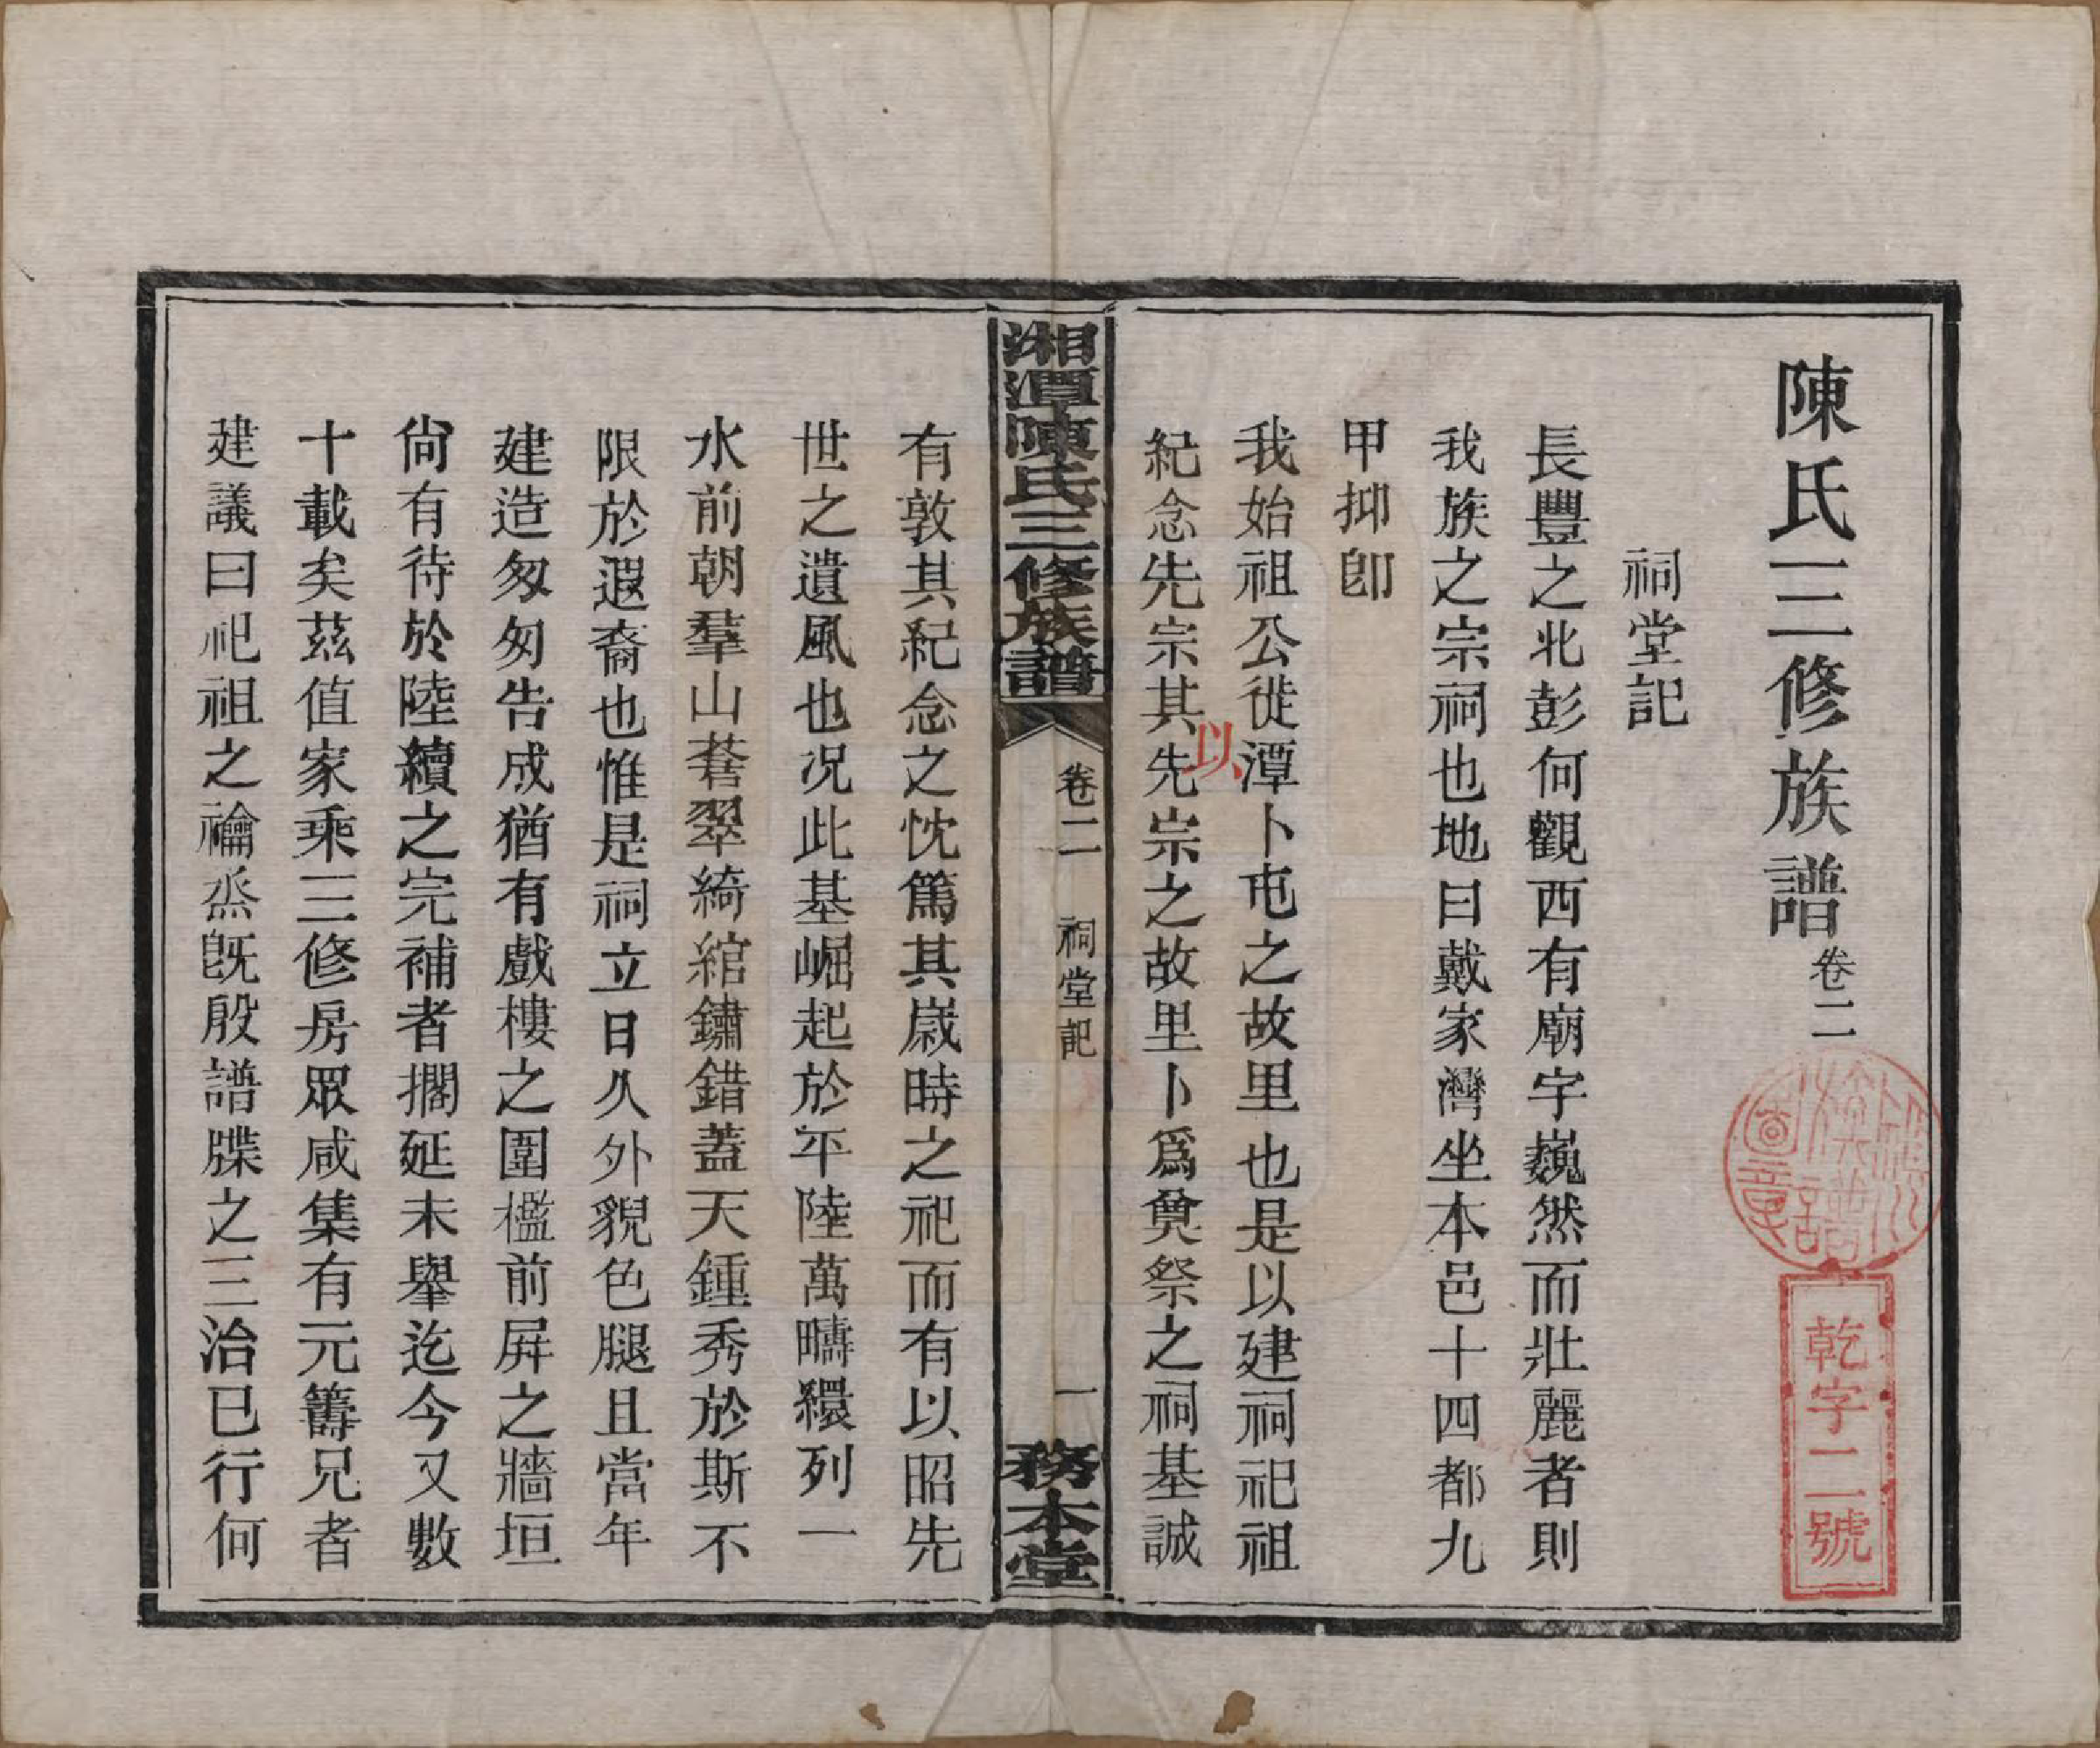 陳氏三修族譜卷二
祠堂記
長豐之北彭何觀西有廟宇巍然而壯麗者則
我族之宗祠也地曰戴家灣坐本邑十四都九
甲抑卽
我始祖公徙潭卜屯之故里也是以建祠祀祖
紀念先宗其先宗之故里卜爲奠祭之祠基誠
以
湘潭陳氏三修族譜
卷二
祠堂記
一
務本堂
有敦其紀念之忱篤其嵗時之祀而有以昭先
世之遺風也况此基崛起於平陸萬疇繯列一
水前朝羣山蒼翠綺綰鏽錯蓋天鍾秀於斯不
限於遐裔也惟是祠立日久外貌色腿且當年
建造匆匆告成猶有戲樓之圍檻前屛之牆垣
尙有待於陸續之完補者擱延未舉迄今又數
十載矣茲值家乘三修房眾咸集有元籌兄者
建議曰祀祖之禴烝旣殷譜牒之三治已行何
乾字二號
族譜圖章